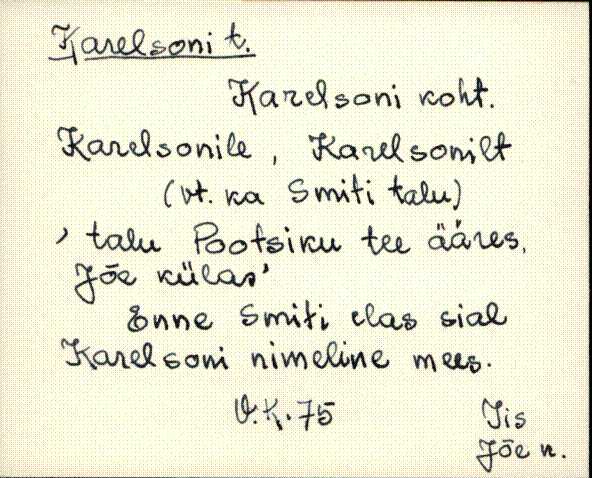 Karelsoni t.
Karelsoni koht.
Karelsonile, Karelsonilt
(vt. ka Smiti talu)
’talu Pootsiku tee ääres,
Jõe külas’
Enne Smiti elas sial
Karelsoni nimeline mees.
V.K. 75
Iis
Jõe k.